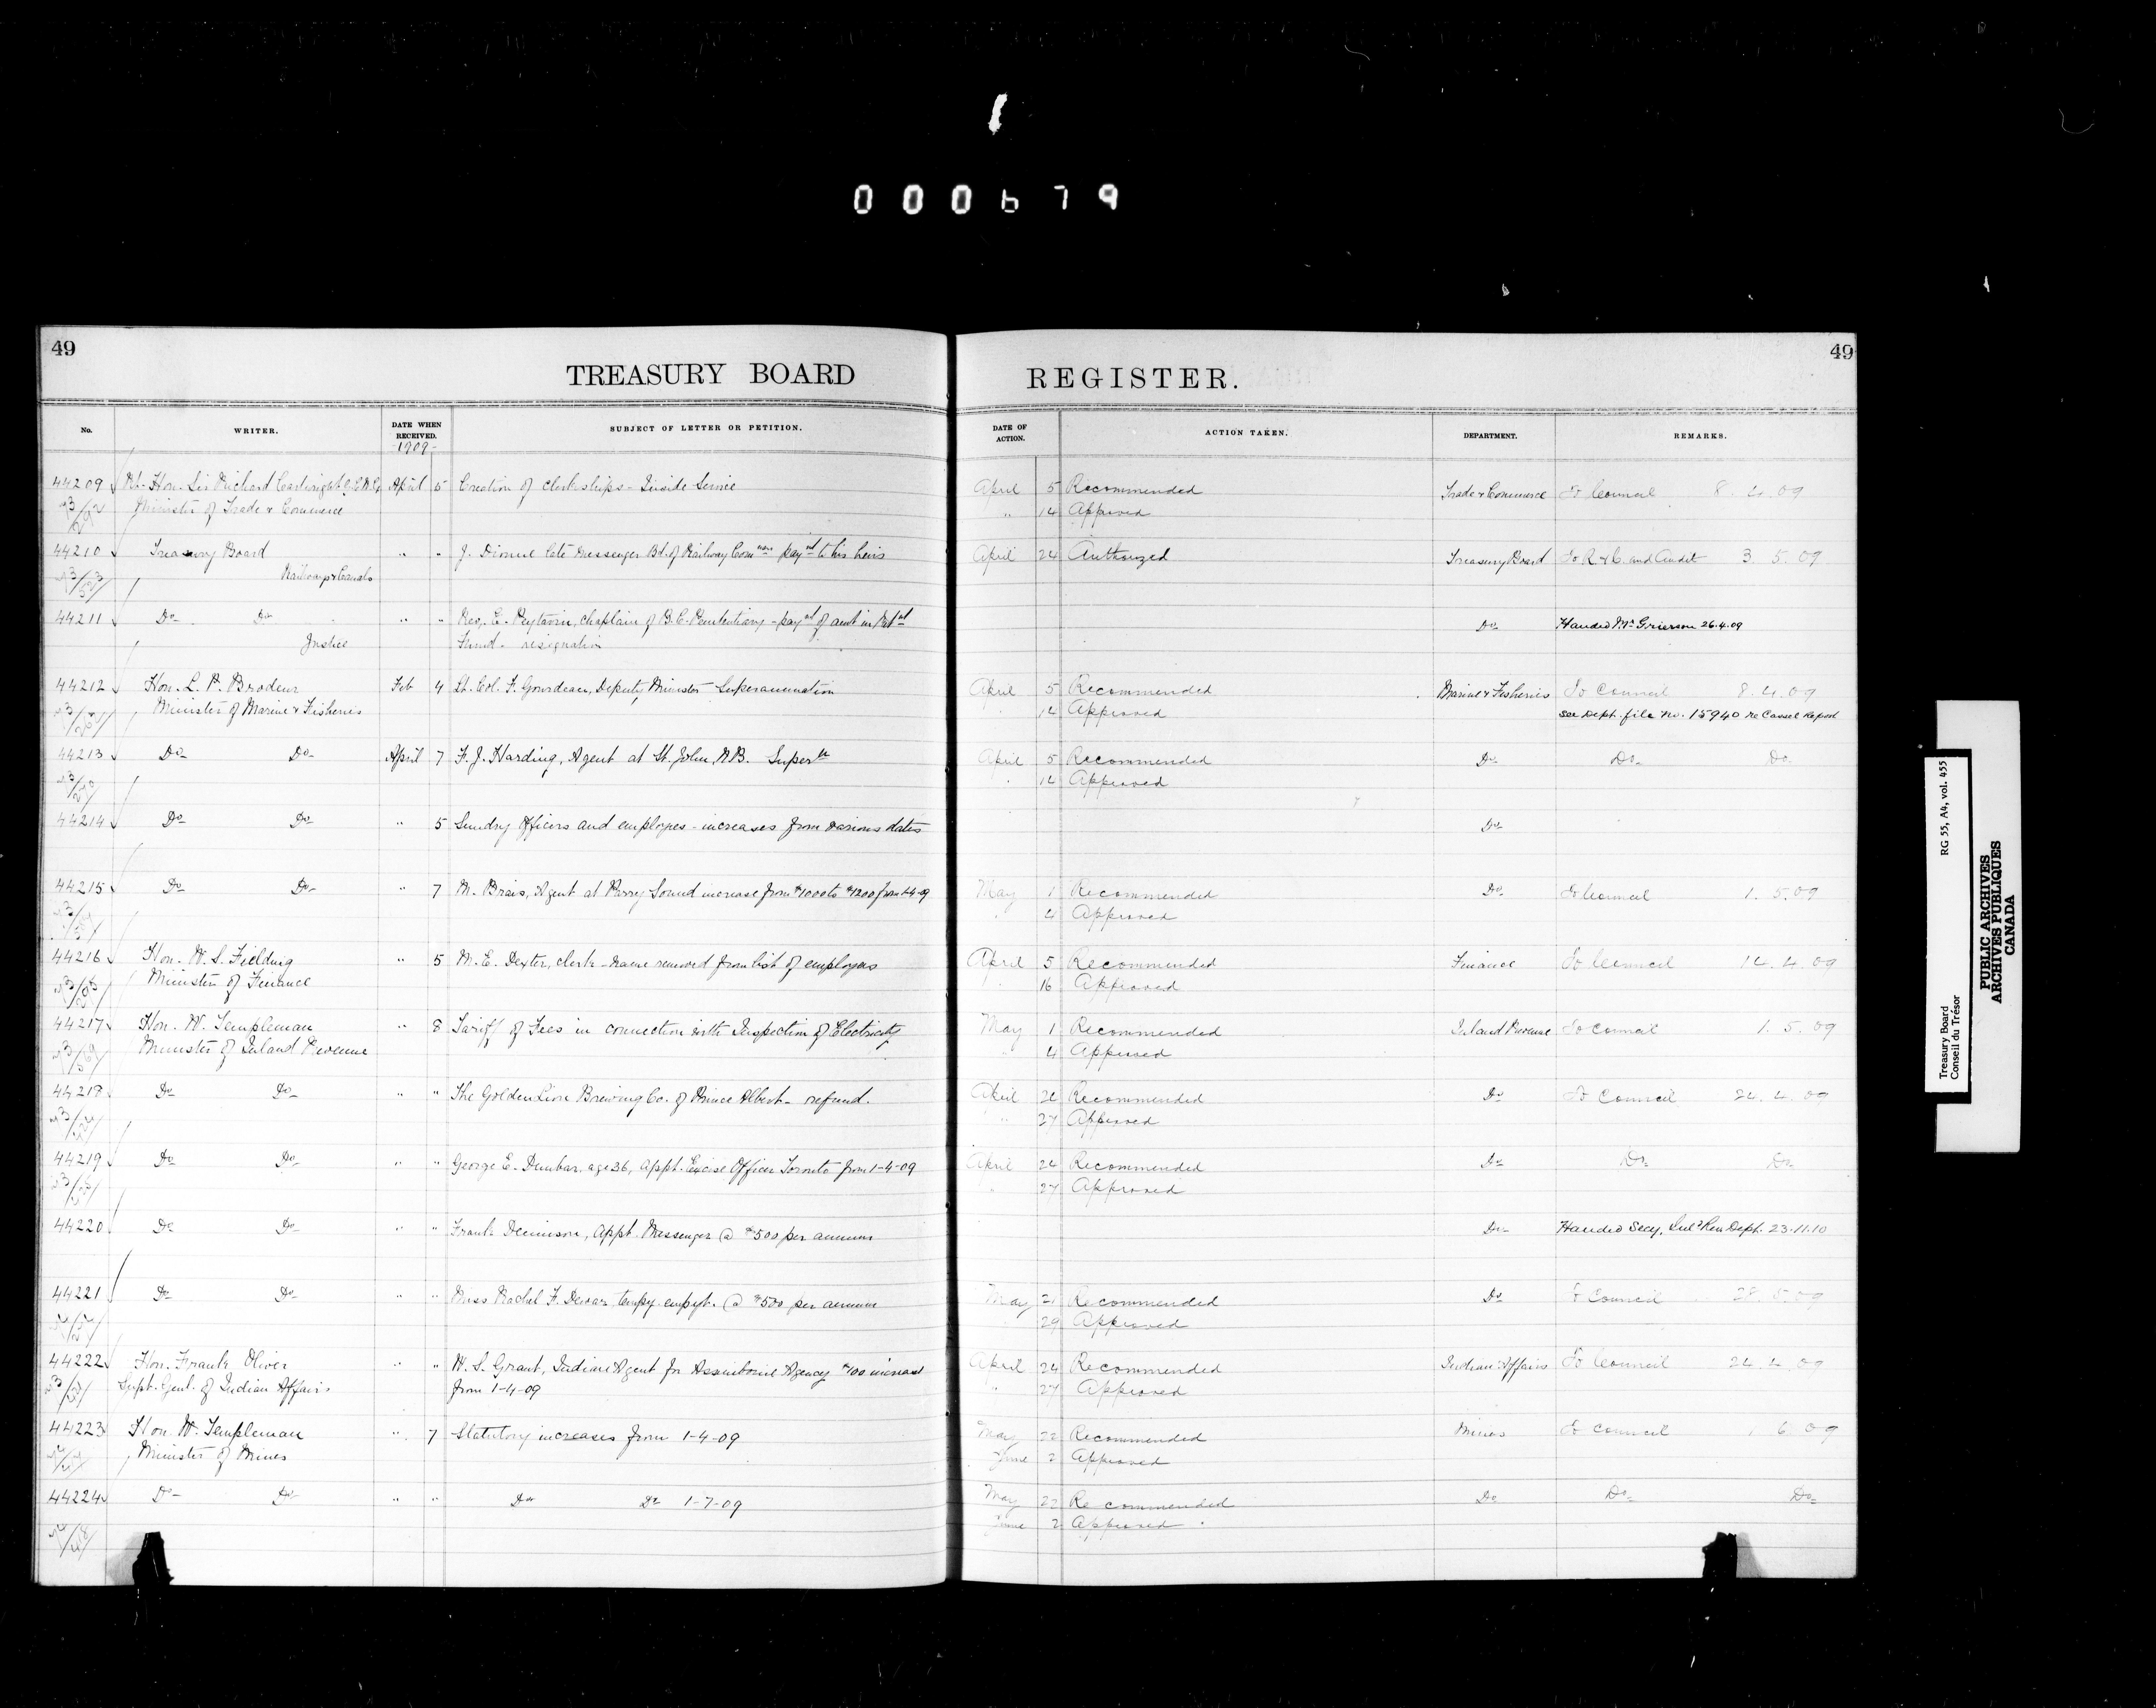 000679
49
TREASURY BOARD
REGISTER.
49
No.
WRITER.
DATE WHEN RECEIVED.
SUBJECT OF LETTER OR PETITION.
DATE OF ACTION.
ACTION TAKEN.
DEPARTMENT.
REMARKS.
-1909-
44209 Rt. Hon. Sir Richard Cartwright G.C.M.G. April 5 Creation of clerkships - Inside Service April 5 Recommended Trade & Commerce To Council 8.4.09
Minister of Trade & Commerce " 14 Approved
44210 Treasury Board " " J. Dionne late Messenger Bd. of Railway Comnrs paynt to his heirs April 24 Authorized Treasury Board To R. & C. and Audit 3.5.09
Railways & Canals
44211 Do Do " " Rev. E. Peytavin, Chaplain of B.C. Penitentiary - paynt of amt in Retnt Do Handed Mr Grierson 26.4.09
Justice Fund - resignation
44212 Hon. L. P. Brodeur Feb 4 Lt. Col. F. Gourdeau, Deputy Minister Superannuation April 5 Recommended Marine & Fisheries To Council 8.4.09
Minister of Marine & Fisheries 14 Approved See Dept. file No. 15940 re Cassel Report
44213 Do Do April 7 F. J. Harding, Agent at St. John, N.B. Supertn April 5 Recommended Do Do Do
14 Approved
44214 Do Do " 5 Sundry Officers and employes - increases from various dates Do
44215 Do Do " 7 M. Brais, Agent at Parry Sound increase from $1000 to $1200 from 1-4-09 May 1 Recommended Do To Council 1.5.09
4 Approved
44216 Hon. W. S. Fielding " 5 M. E. Dexter, clerk - name removed from list of employes April 5 Recommended Finance To Council 14.4.09
Minister of Finance 16 Approved
44217 Hon. W. Templeman " 8 Tariff of Fees in connection with Inspection of Electricity May 1 Recommended Inland Revenue To Council 1.5.09
Minister of Inland Revenue 4 Approved
44218 Do Do " " The Golden Lion Brewing Co. of Prince Albert - refund. April 24 Recommended Do To Council 24.4.09
27 Approved
44219 Do Do " " George E. Dunbar, age 36, Appt. Excise Officer Toronto from 1-4-09 April 24 Recommended Do Do Do
27 Approved
44220 Do Do " " Frank Dennison, Appt. Messenger @ $500 per annum Do Handed Secy. Inld Rev Dept. 23.11.10
44221 Do Do " " Miss Rachel F. Dewar tempy. empyt. @ $500 per annum May 21 Recommended Do To Council 28.5.09
29 Approved
44222 Hon. Frank Oliver " " W. S. Grant, Indian Agent for Assiniboine Agency $100 increase April 24 Recommended Indian Affairs To Council 24.4.09
Supt. Genl. of Indian Affairs from 1-4-09 27 Approved
44223 Hon. W. Templeman " 7 Statutory increases from 1-4-09 May 22 Recommended Mines To Council 1.6.09
Minister of Mines June 2 Approved
44224 Do Do " " Do Do 1-7-09 May 22 Recommended Do Do Do
June 2 Approved
Treasury Board
Conseil du Trésor
RG 55, A4, vol. 455
PUBLIC ARCHIVES
ARCHIVES PUBLIQUES
CANADA